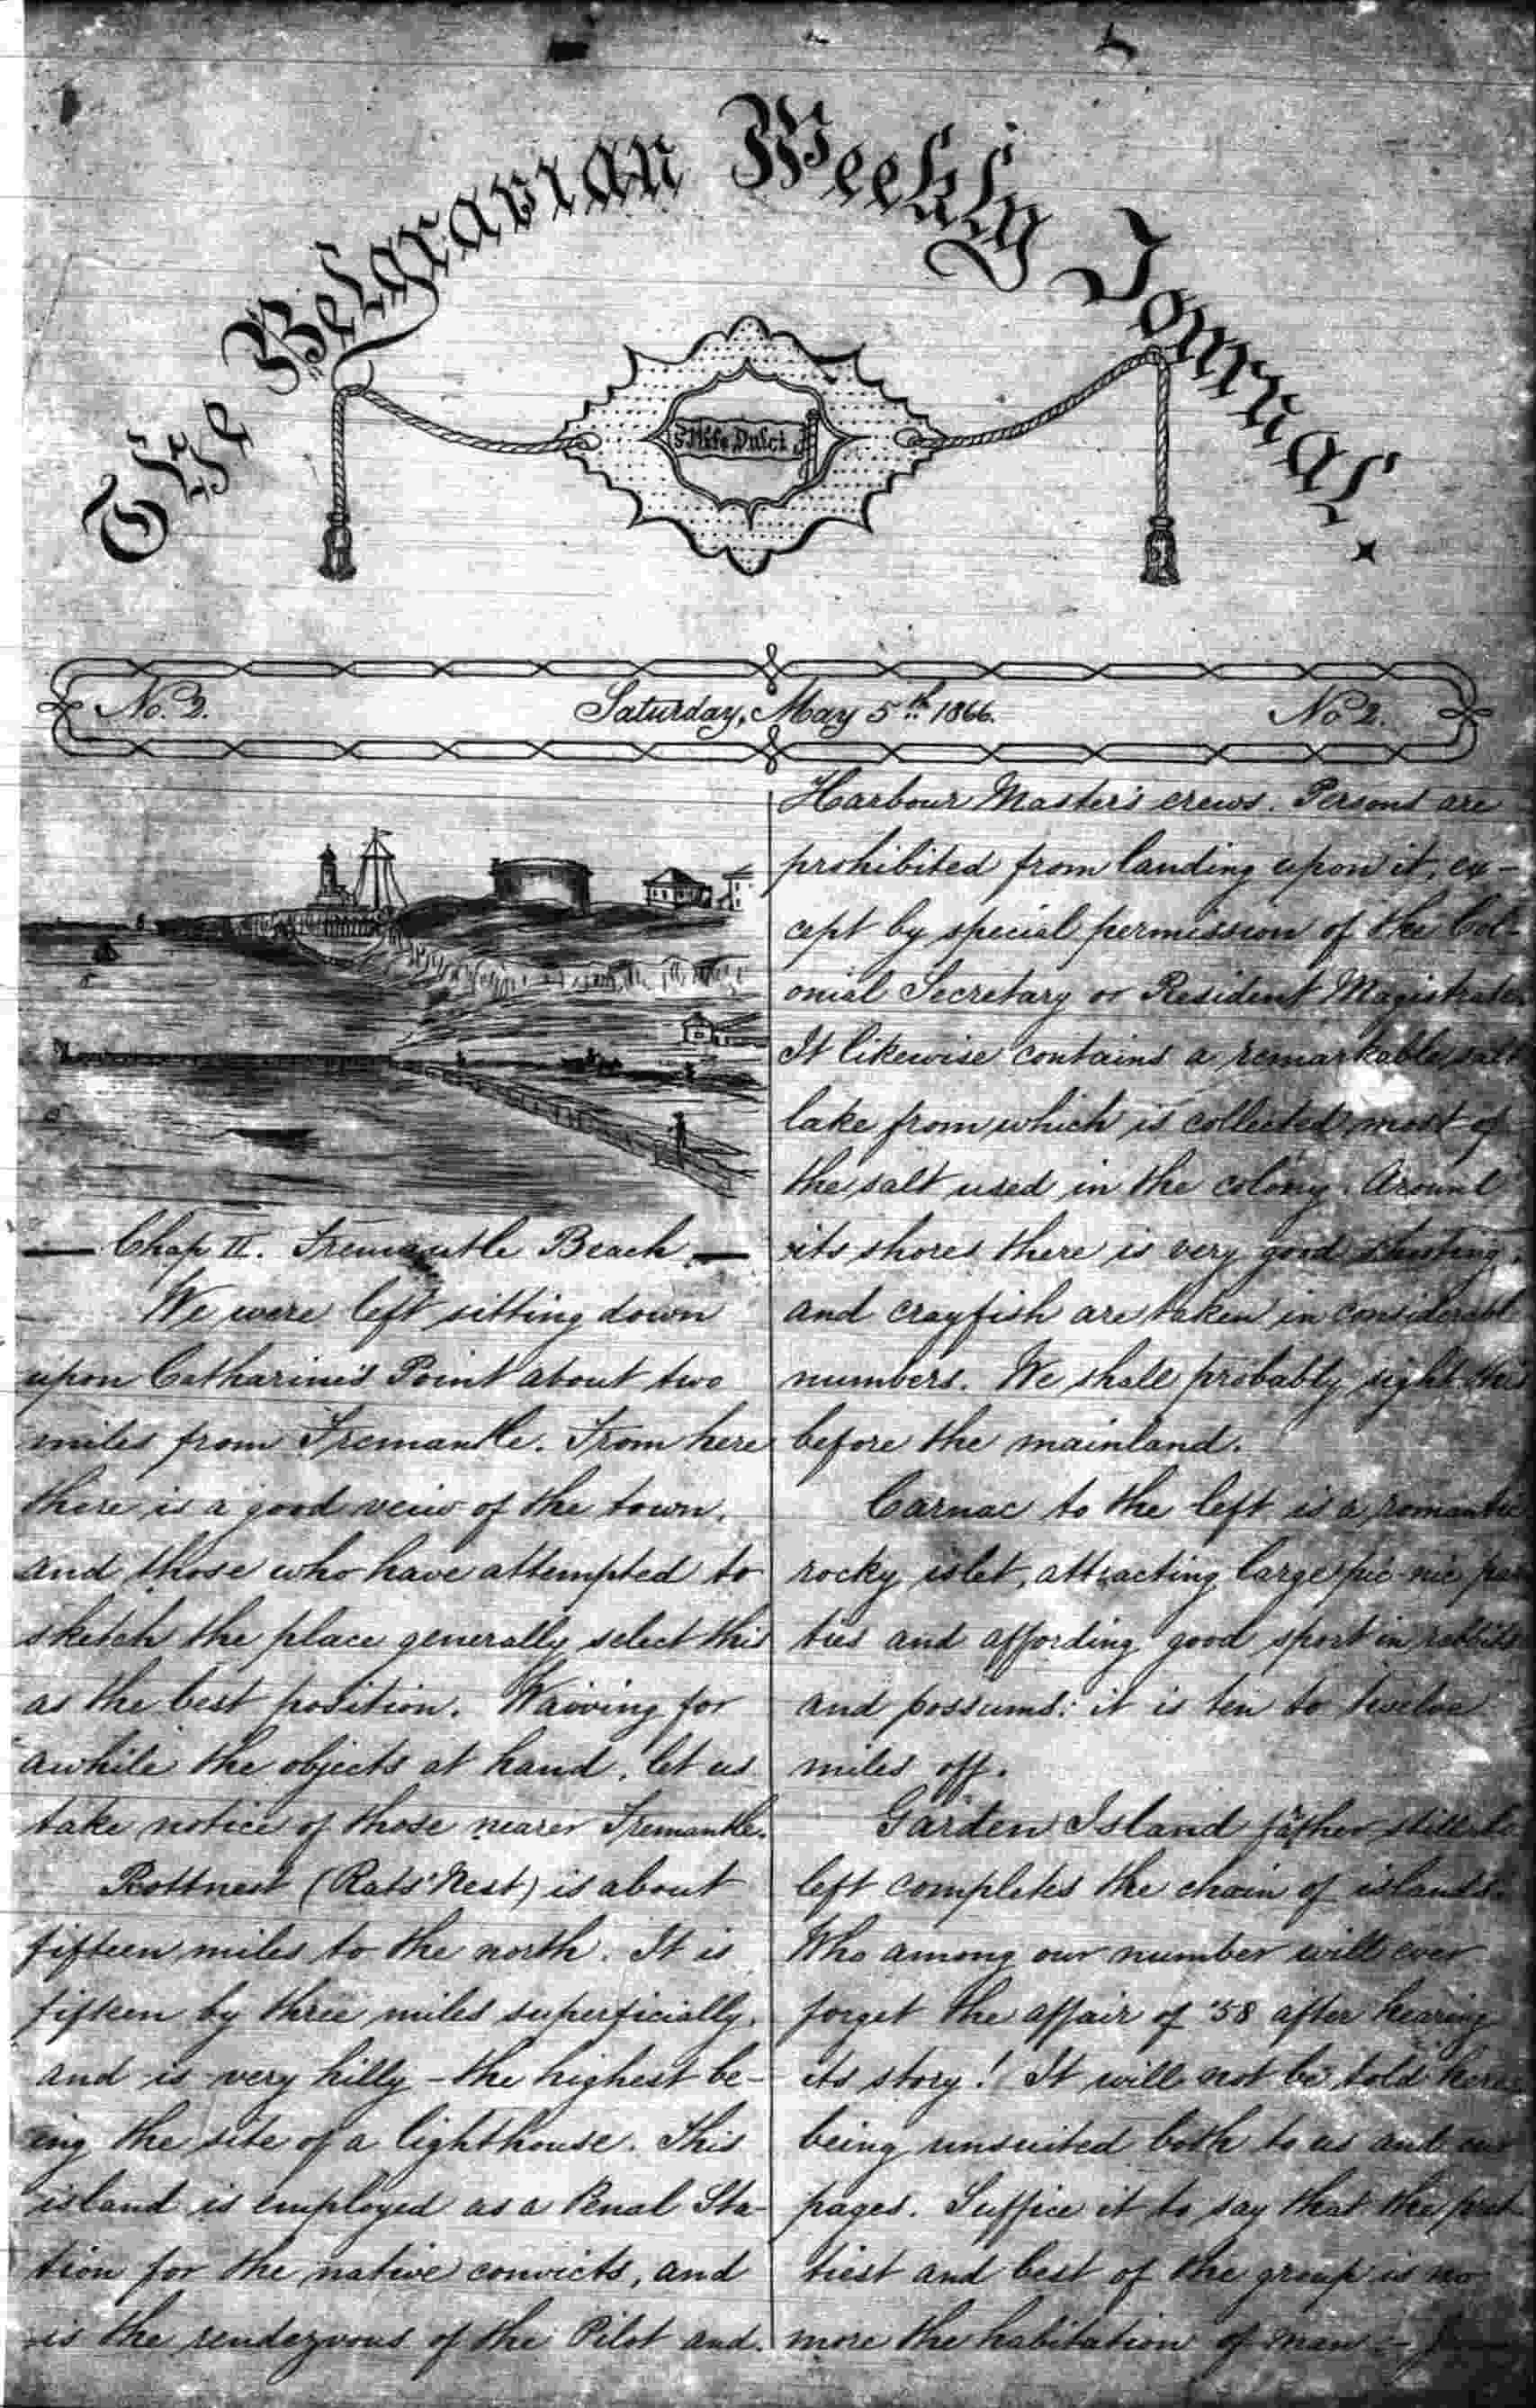 The Belgravian Weekly Journal.
Utile Dulci
No. 2.
Saturday, May 5th 1866.
No 2.
— Chap II. Fremantle Beach —
We were left sitting down
upon Catharine's Point about two
miles from Fremantle. From here
there is a good veiw of the town,
and those who have attempted to
sketch the place generally select this
as the best position. Waiving for
awhile the objects at hand, let us
take notice of those nearer Fremantle.
Rottnest (Rats' Nest) is about
fifteen miles to the north. It is
fifteen by three miles superficially,
and is very hilly – the highest be-
ing the site of a lighthouse. This
island is employed as a Penal Sta-
tion for the native convicts, and
is the rendezvous of the Pilot and
Harbour Master's crews. Persons are
prohibited from landing upon it, ex-
cept by special permission of the Col-
onial Secretary or Resident Magistrate.
It likewise contains a remarkable salt
lake from which is collected most of
the salt used in the colony. Around
its shores there is very good shooting,
and crayfish are taken in considerable
numbers. We shall probably sight this
before the mainland.
Carnac to the left is a romantic
rocky islet, attracting large pic-nic par
ties and affording good sport in rabbits
and possums: it is ten to twelve
miles off.
Garden Island farther still to
left completes the chain of islands.
Who among our number will ever
forget the affair of '58 after hearing
its story! It will not be told here
being unsuited both to us and our
pages. Suffice it to say that the pret
tiest and best of the group is no
more the habitation of man :-